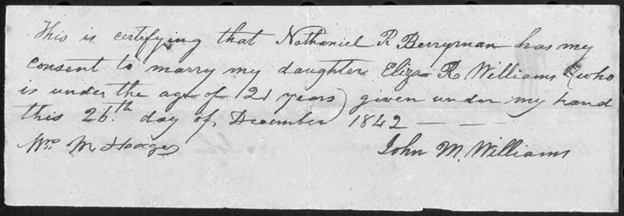 This is certifying that Nathaniel R Berryman has my
consent to marry my daughter Eliza R Williams (who
is under the age of 21 years) given under my hand
this 26th day of December 1842 — — —
Wm M Hodges John M. Williams